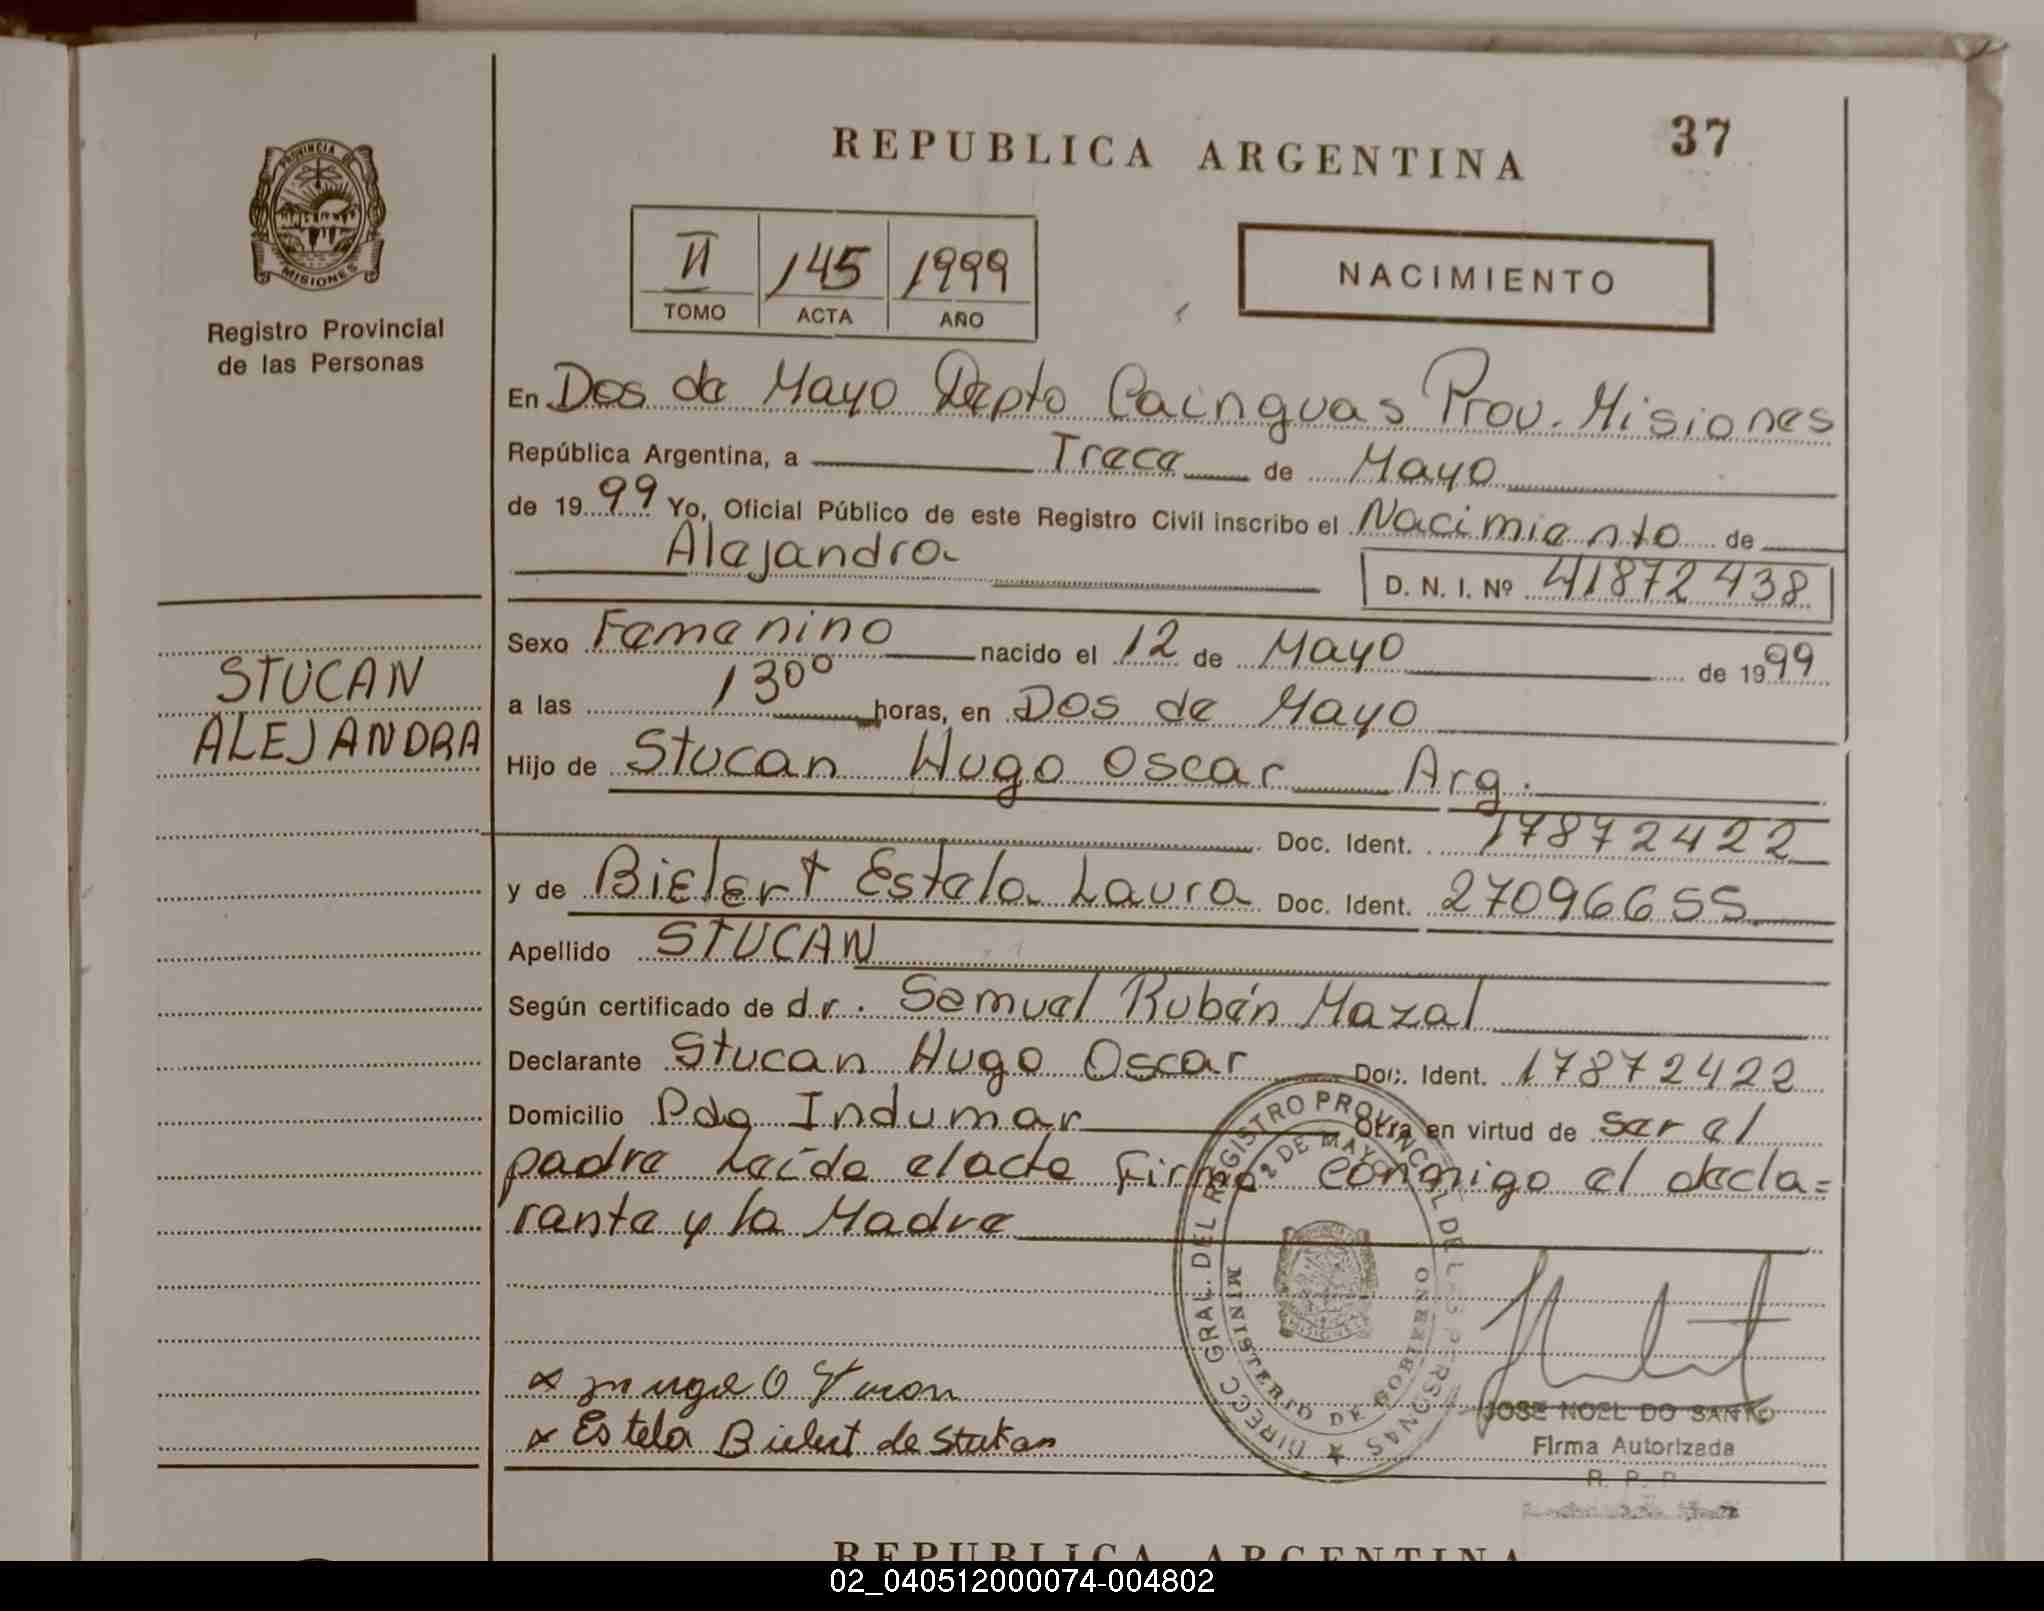 REPUBLICA ARGENTINA
37
PROVINCIA DE
MISIONES
Registro Provincial
de las Personas
II 145 1999
TOMO ACTA AÑO
NACIMIENTO
En Dos de Mayo Depto Cainguas Prov. Misiones
República Argentina, a Trece de Mayo
de 1999 Yo, Oficial Público de este Registro Civil inscribo el Nacimiento de
Alejandra
D. N. I. Nº 41872438
STUCAN
ALEJANDRA
Sexo Femenino nacido el 12 de Mayo de 1999
a las 13⁰⁰ horas, en Dos de Mayo
Hijo de Stucan Hugo Oscar Arg.
Doc. Ident. 17872422
y de Bielert Estela Laura Doc. Ident. 27096655
Apellido STUCAN
Según certificado de dr. Samuel Rubén Mazal
Declarante Stucan Hugo Oscar Doc. Ident. 17872422
Domicilio Pdo Indumar Otra en virtud de ser el
padre Leída el acta firma conmigo el decla=
rante y la Madre
DIRECC GRAL. DEL REGISTRO PROVINCIAL DE LAS PERSONAS
2 DE MAYO
MINISTERIO DE GOBIERNO
x Estela Bielert de Stukan
JOSE NOEL DO SANTO
Firma Autorizada
R. P. P.
REPUBLICA ARGENTINA
02_040512000074-004802